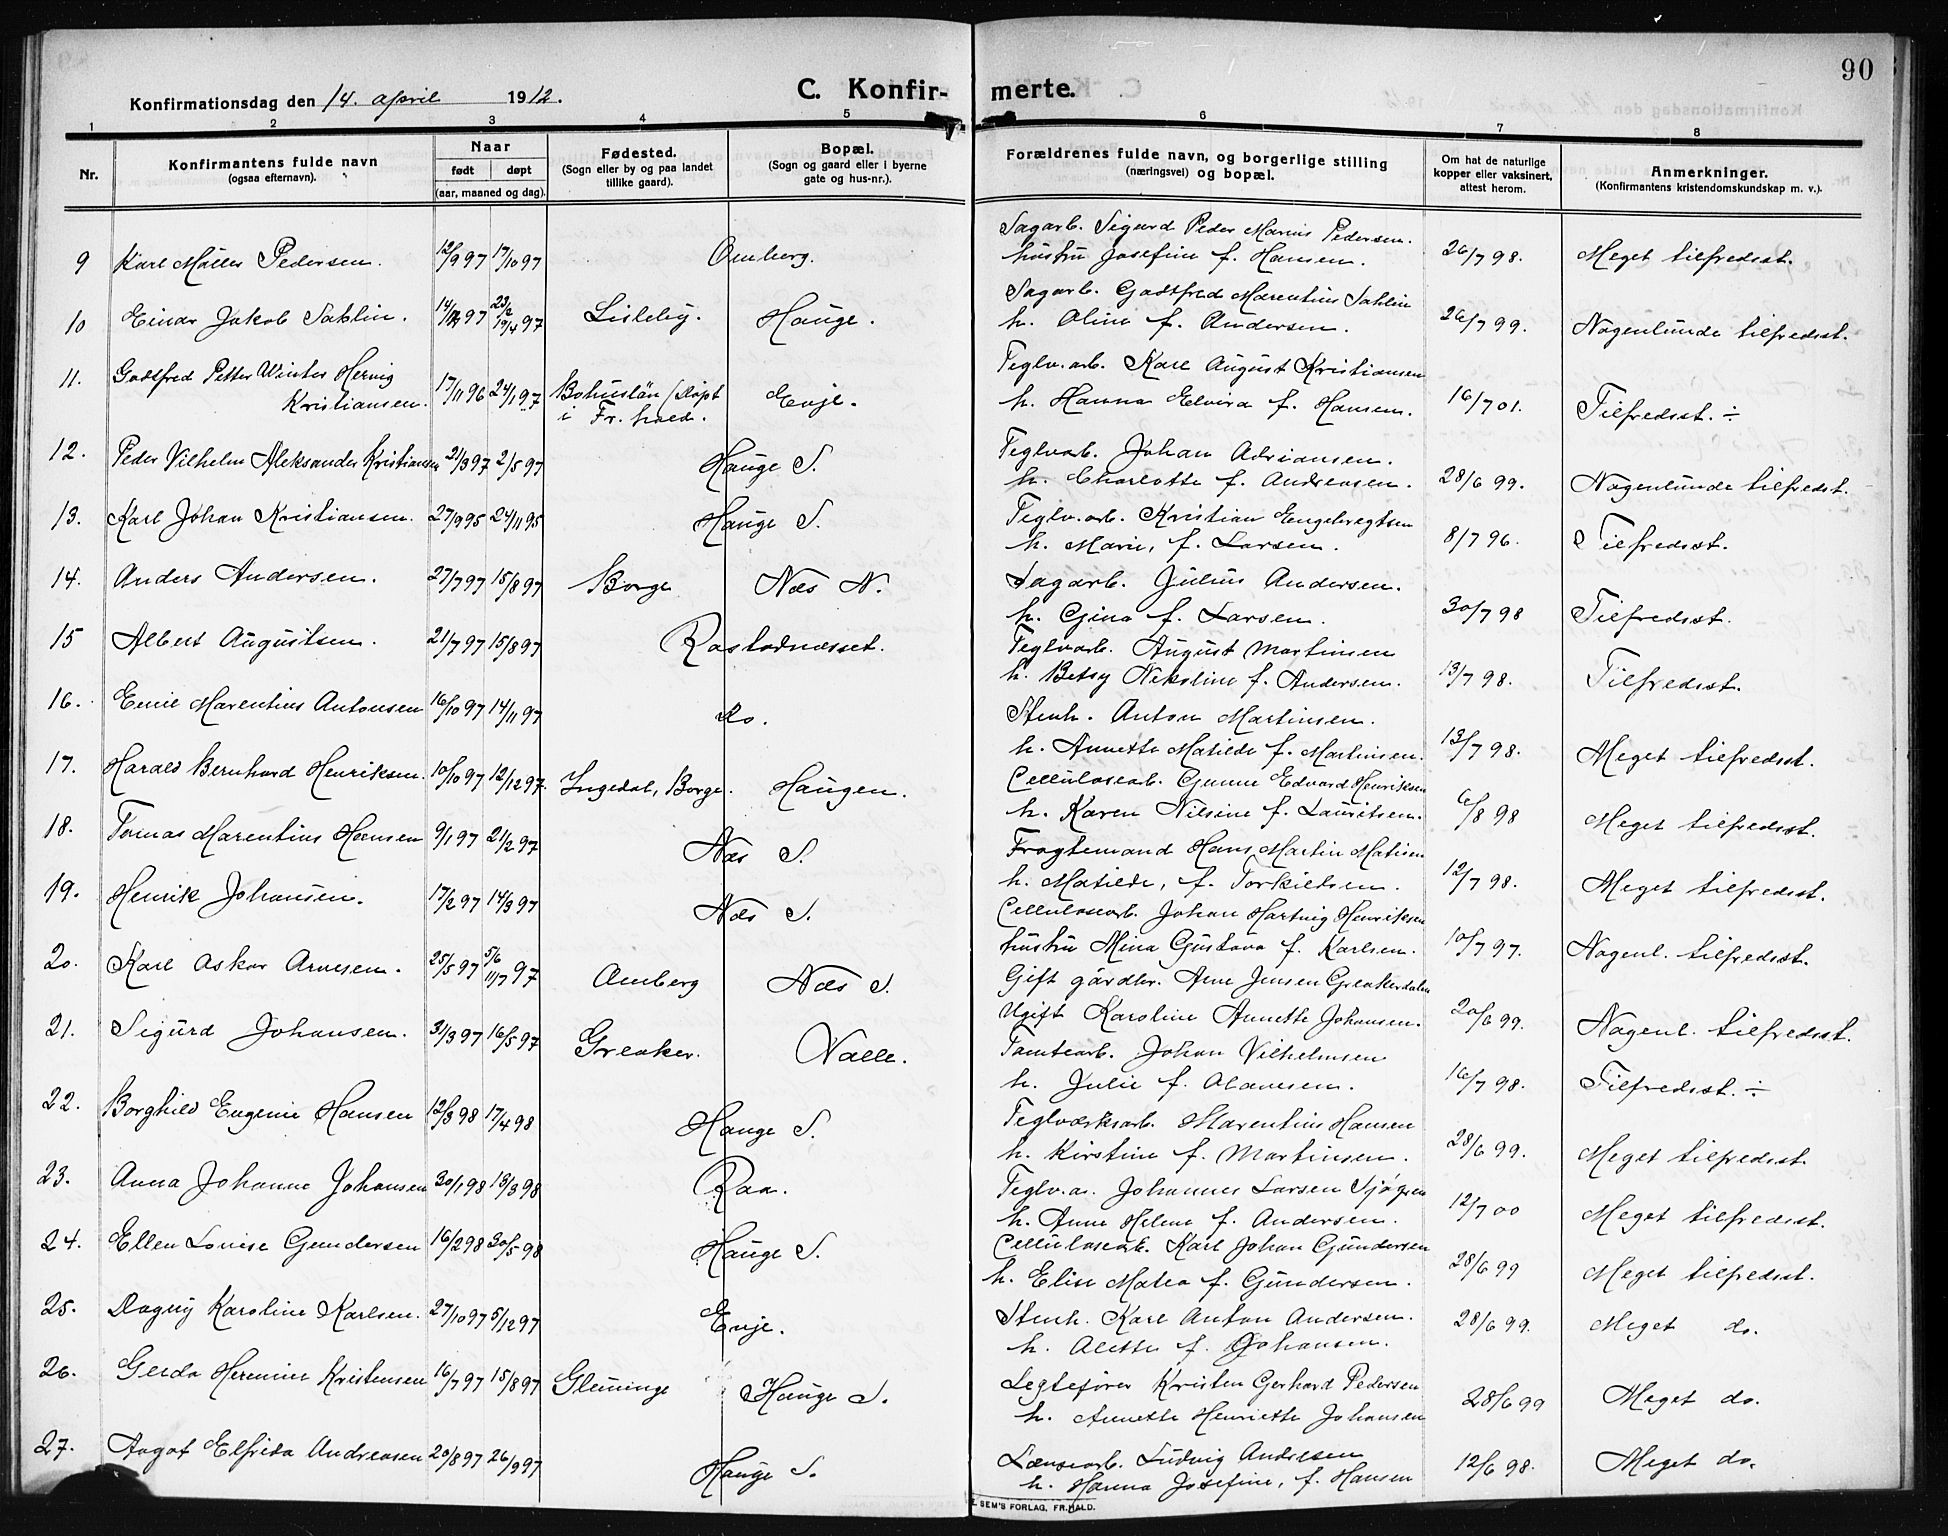 90
Konfirmationsdag den 14. april 1912.
C. Konfirmerte.
1 2 3 4 5 6 7 8
Nr.
Konfirmantens fulde navn
(ogsaa efternavn).
Naar
født døpt
(aar, maaned og dag).
Fødested.
(Sogn eller by og paa landet
tillike gaard).
Bopæl.
(Sogn og gaard eller i byerne
gate og hus-nr.).
Forældrenes fulde navn, og borgerlige stilling
(næringsvei) og bopæl.
Om hat de naturlige
kopper eller vaksinert,
attest herom.
Anmerkninger.
(Konfirmantens kristendomskundskap m. v.).
Sagarb. Sigurd Peder Marius Pedersen.
9 Karl Møller Pedersen. 12/9 97 17/10 97 Omberg. hustru Josefine f. Hansen. 26/7 98. Meget tilfredsst.
Sagarb. Godtfred Marentius Sahlin
10 Einar Jakob Sahlin. 23/2 19/4 97 Lisleby. Hauge. h. Oline f. Andersen. 26/7 99. Nogenlunde tilfredsst.
11. Godtfred Petter Winter Hervig Teglv.arb. Karl August Kristiansen
Kristiansen. 17/11 96 24/1 97 Bohuslän (døpt Evje. h. Hanna Elvira f. Hansen. 16/7 01. Tilfredsst. ÷
i Fr.hald.
12. Peder Vilhelm Aleksander Kristiansen 21/3 97 2/5 97 Hauge S. Teglvarb. Johan Adriansen.
h. Charlotte f. Andreasen. 28/6 99. Nogenlunde tilfredsst.
13. Karl Johan Kristiansen. 27/9 95 24/11 95 Hauge S. Teglv.arb. Kristian Engebregtsen
h. Marie, f. Larsen. 8/7 96. Tilfredsst.
14. Anders Andersen. 27/7 97 15/8 97 Borge Næs N. Sagarb. Julius Andersen.
h. Gina f. Larsen. 30/7 98 Tilfredsst.
15 Albert Augustsen. 21/7 97 15/8 97 Rostadnæsset. Teglvarb. August Martinsen
h. Betsy Nikoline f. Andersen. 13/7 98. Tilfredsst.
16. Emil Marentius Antonsen 16/10 97 14/11 97 do. Stenh. Anton Martinsen.
h. Annette Matilde f. Martinsen. 13/7 98. Meget tilfredsst.
17. Harald Bernhard Henriksen. 10/10 97 12/12 97. Ingedal, Borge. Haugen. Celluloseab. Gunne Edvard Henriksen
h. Karen Nilsine f. Lauritsen. 6/8 98 Meget tilfredsst.
18. Tomas Marentius Hansen 9/1 97 21/2 97 Næs S. Fragtemand Hans Martin Matisen
h. Matilde, f. Torkildsen. 12/7 98. Meget tilfredsst.
19. Henrik Johansen. 17/2 97 14/3 97 Næs S. Cellulosearb. Johan Hartvig Henriksen
hustru Mina Gustava f. Karlsen. 10/7 97. Nogenl. tilfredsst.
20. Karl Oskar Arnesen. 25/5 97 5/6 11/7 97 Omberg Næs S. Gift gårdbr. Arne Jensen Greakerdalen
Ugift Karoline Annette Johansen. 20/6 99. Nogenl. tilfredsst.
21. Sigurd Johansen. 31/3 97 16/5 97 Greaker. Valle. Tomtearb. Johan Vilhelmsen
h. Julie f. Olavesen. 16/7 98. Tilfredsst. ÷
22. Borghild Eugenie Hansen 12/3 98 17/4 98 Hauge S. Teglverksarb. Marentius Hansen
h. Kirstine f. Martinsen. 28/6 99. Meget tilfredsst.
23. Anna Johanne Johansen 30/1 98 13/3 98 Raa. Teglv.a. Johannes Larsen Sjøgren
h. Anne Helene f. Andersen. 12/7 00 Meget tilfredsst.
24. Ellen Lovise Gundersen 16/2 98 30/5 98 Hauge S. Cellulosearb. Karl Johan Gundersen
h. Elise Matea f. Gundersen. 28/6 99 Meget tilfredsst.
25. Dagny Karoline Karlsen. 27/10 97 5/12 97 Evje. Stenh. Karl Anton Andersen.
h. Alette f. Johansen. 28/6 99. Meget do.
26. Gerda Hermine Kristensen 16/7 97 15/8 97 Glemminge Hauge S. Legtefører Kristen Gerhard Pedersen
h. Annette Henriette Johansen 28/6 99 Meget do.
27. Aagot Elfrida Andreasen 20/8 97 26/9 97 Hauge S. Lænsearb. Ludvig Andresen
h. Hanna Josefine, f. Hansen 12/6 98. Meget do.
SEM'S FORLAG, FR.HALD.